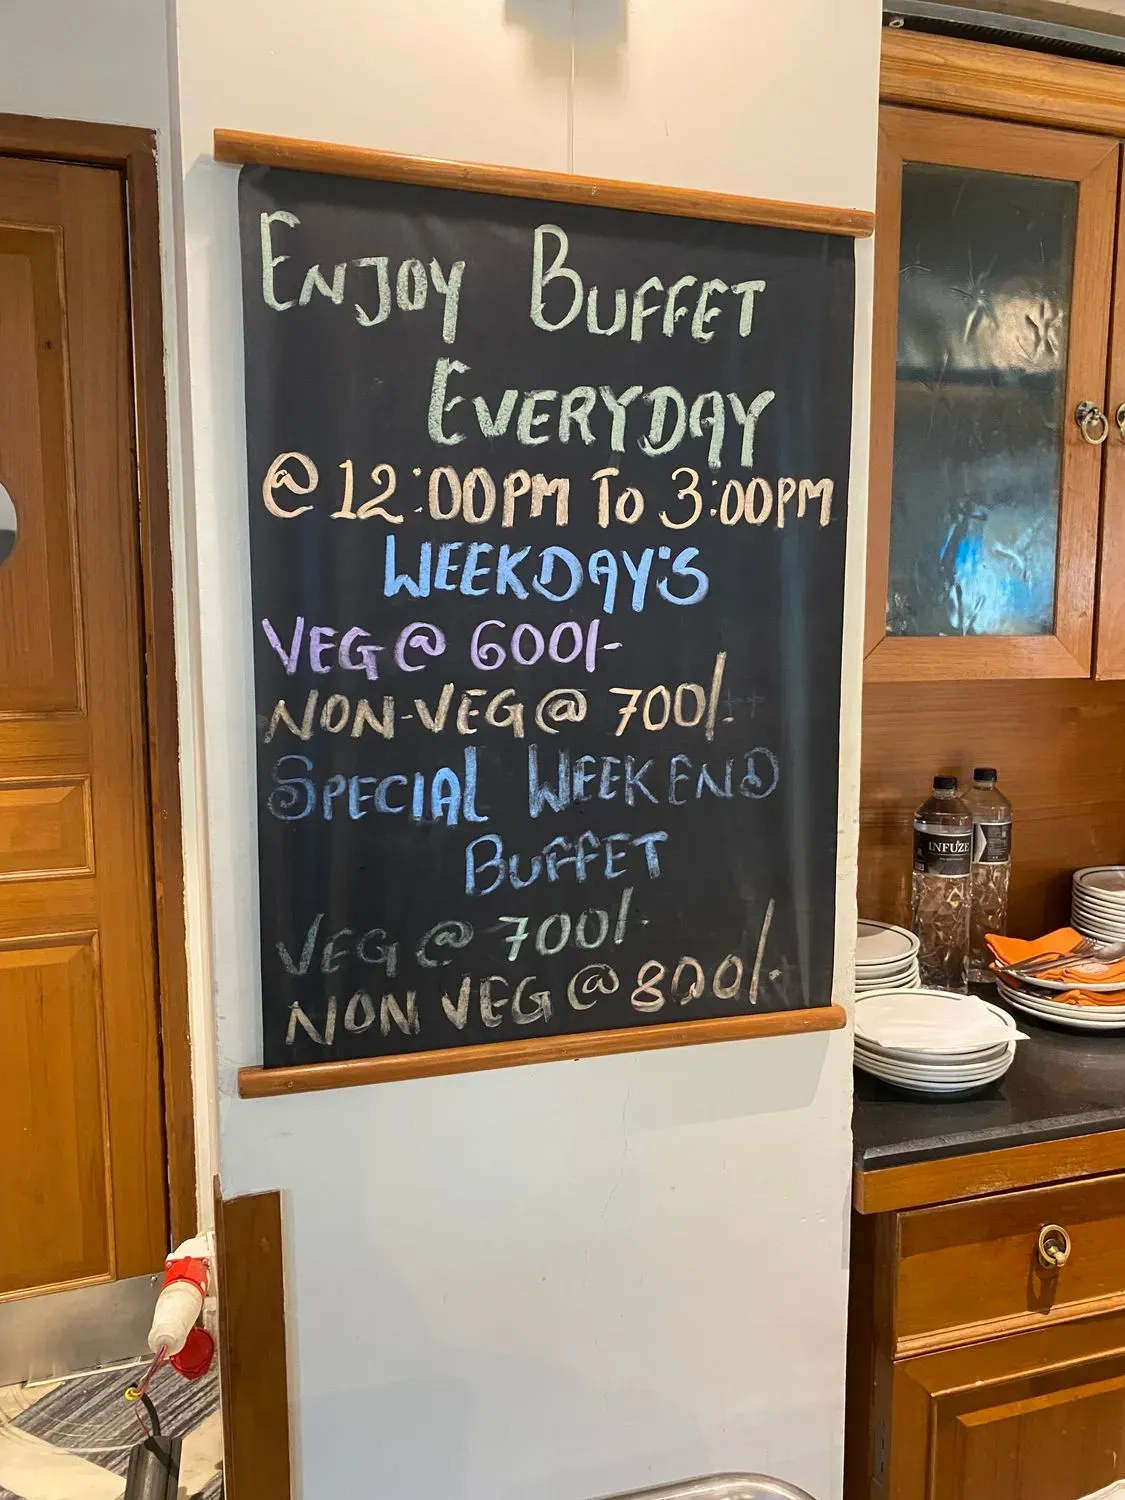 ENJOY BUFFET
EVERYDAY
@ 12:00PM TO 3:00PM
WEEKDAY'S
VEG @ 600/-
NON-VEG @ 700/-
SPECIAL WEEKEND
BUFFET
VEG @ 700/-
NON VEG @ 800/-
INFUZE